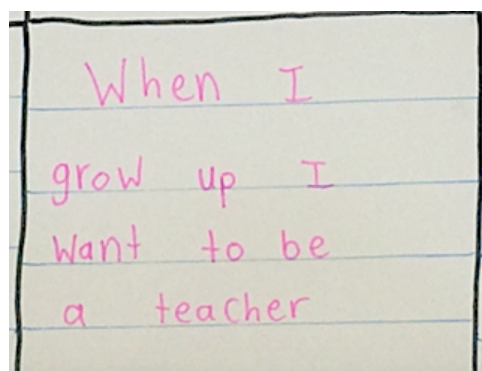 When I
grow up I
want to be
a teacher